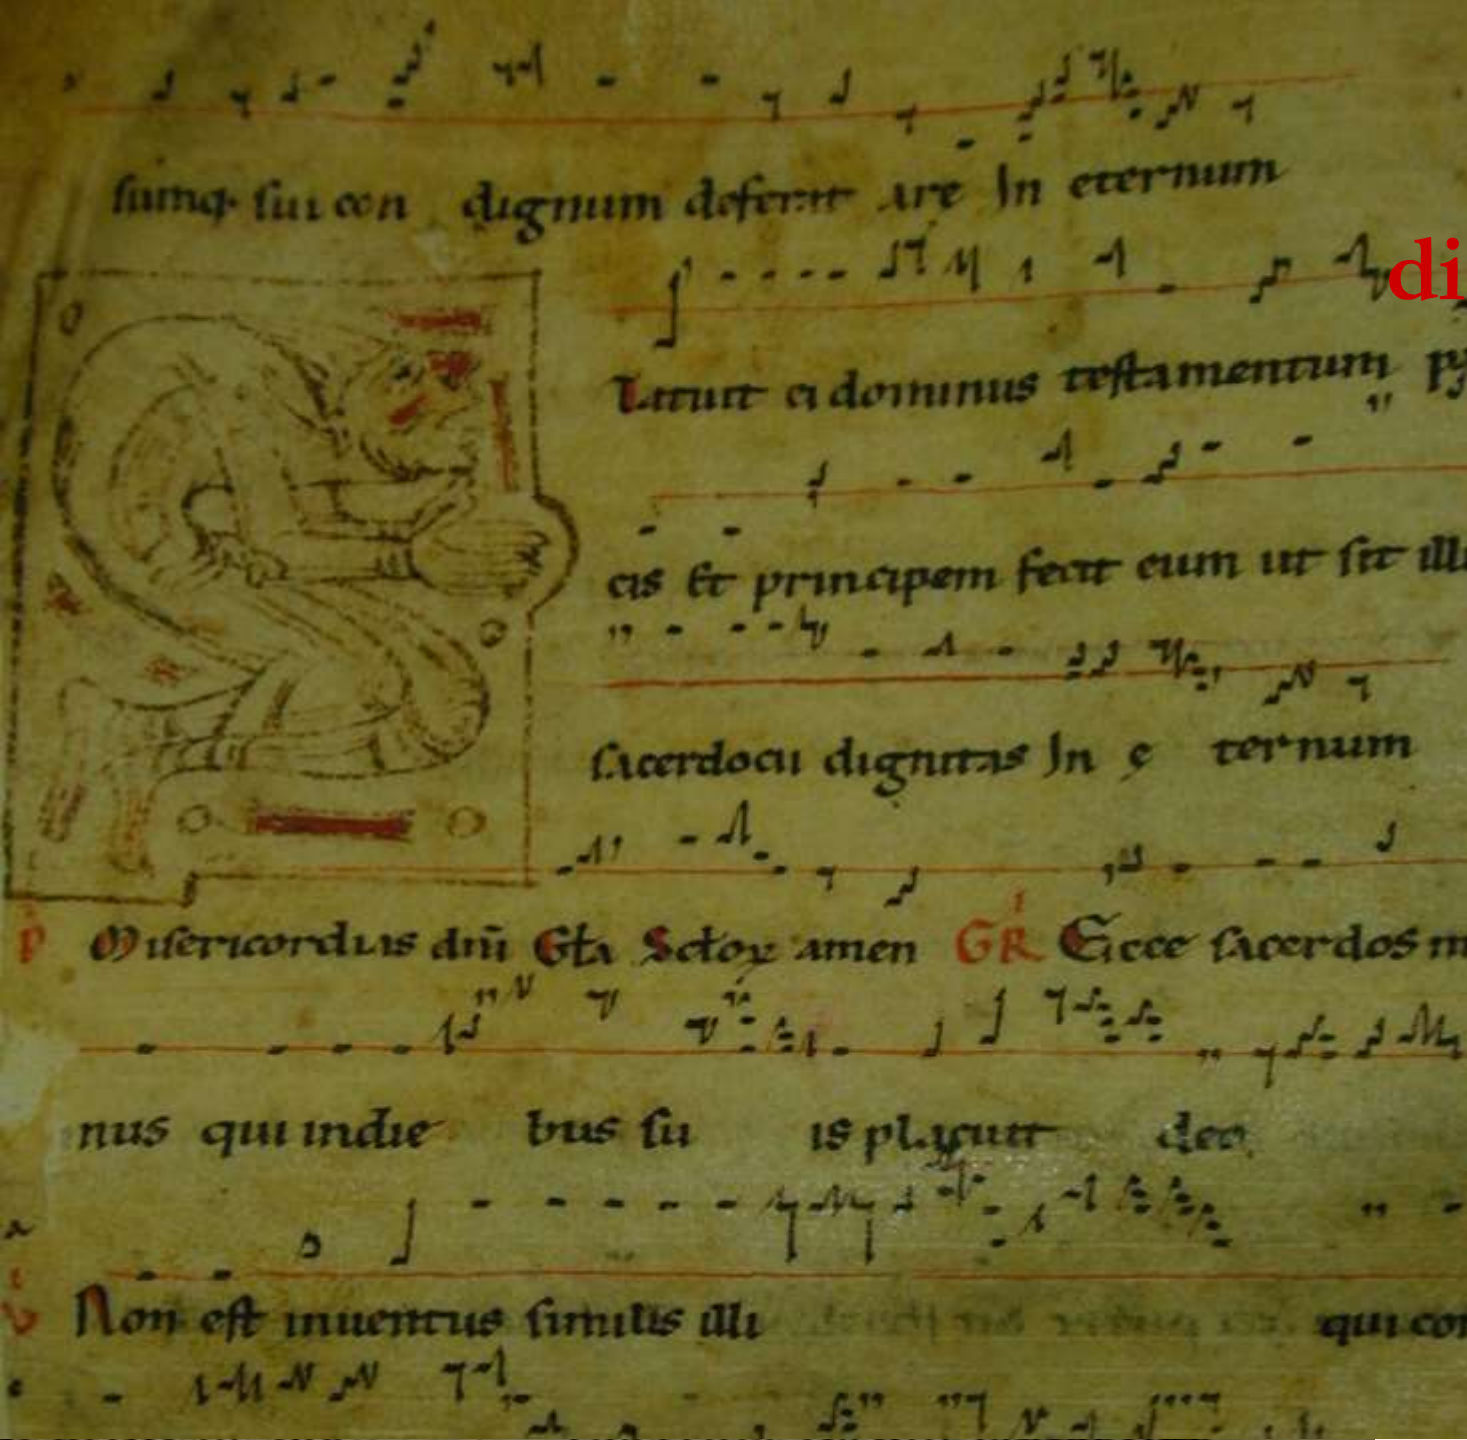 sumq. sui con dignum deferat are In eternum
di
tatuit ei dominus testamentum
cis Et principem fecit eum ut sit illi
sacerdocii dignitas In ę ternum
p Misericordias dñi Gła Sctoꝝ amen GR Ecce sacerdos m
nus qui in die bus su is placuit deo
v Non est inuentus similis illi qui con